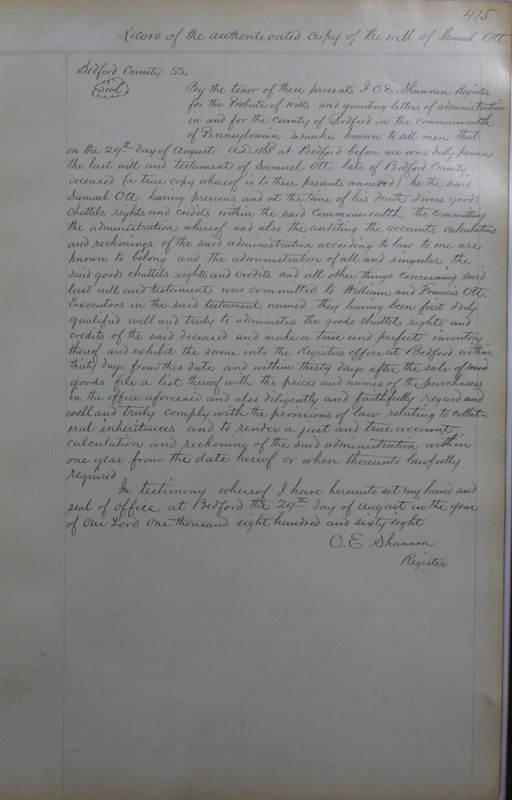 415
Record of the authenticated copy of the will of Samuel Ott
Bedford County SS.
Seal
By the tenor of these presents I O E Shannon Register
for the Probate of wills and granting letters of administration
in and for the county of Bedford in the commonwealth
of Pennsylvania do make known to all men that
on the 29th day of August A.D. 1868 at Bedford before me was duly proven
the last will and testament of Samuel Ott late of Bedford County
deceased (a true copy whereof is to these presents annexed) he the said
Samuel Ott having previous and at the time of his death divers goods
chattels rights and credits within the said Commonwealth the committing
the administration whereof and also the auditing the accounts calculations
and reckonings of the said administration according to law to me are
known to belong and the administration of all and singular the
said goods chattels rights and credits and all other things concerning said
last will and testament was committed to William and Francis Ott
Executors in the said testament named they having been first duly
qualified well and truly to administer the goods chattels rights and
credits of the said deceased and make a true and perfect inventory
thereof and exhibit the same into the Registers office at Bedford within
thirty days from this date and within thirty days after the sale of said
goods file a list thereof with the prices and names of the purchasers
in the office aforesaid and also diligently and faithfully regard and
well and truly comply with the provisions of law relating to collat
eral inheritances and to render a just and true account
calculation and reckoning of the said administration within
one year from the date hereof or when thereunto lawfully
required
In testimony whereof I have hereunto set my hand and
seal of office at Bedford the 29th day of august in the year
of our Lord one thousand eight hundred and sixty eight
O. E Shannon
Register